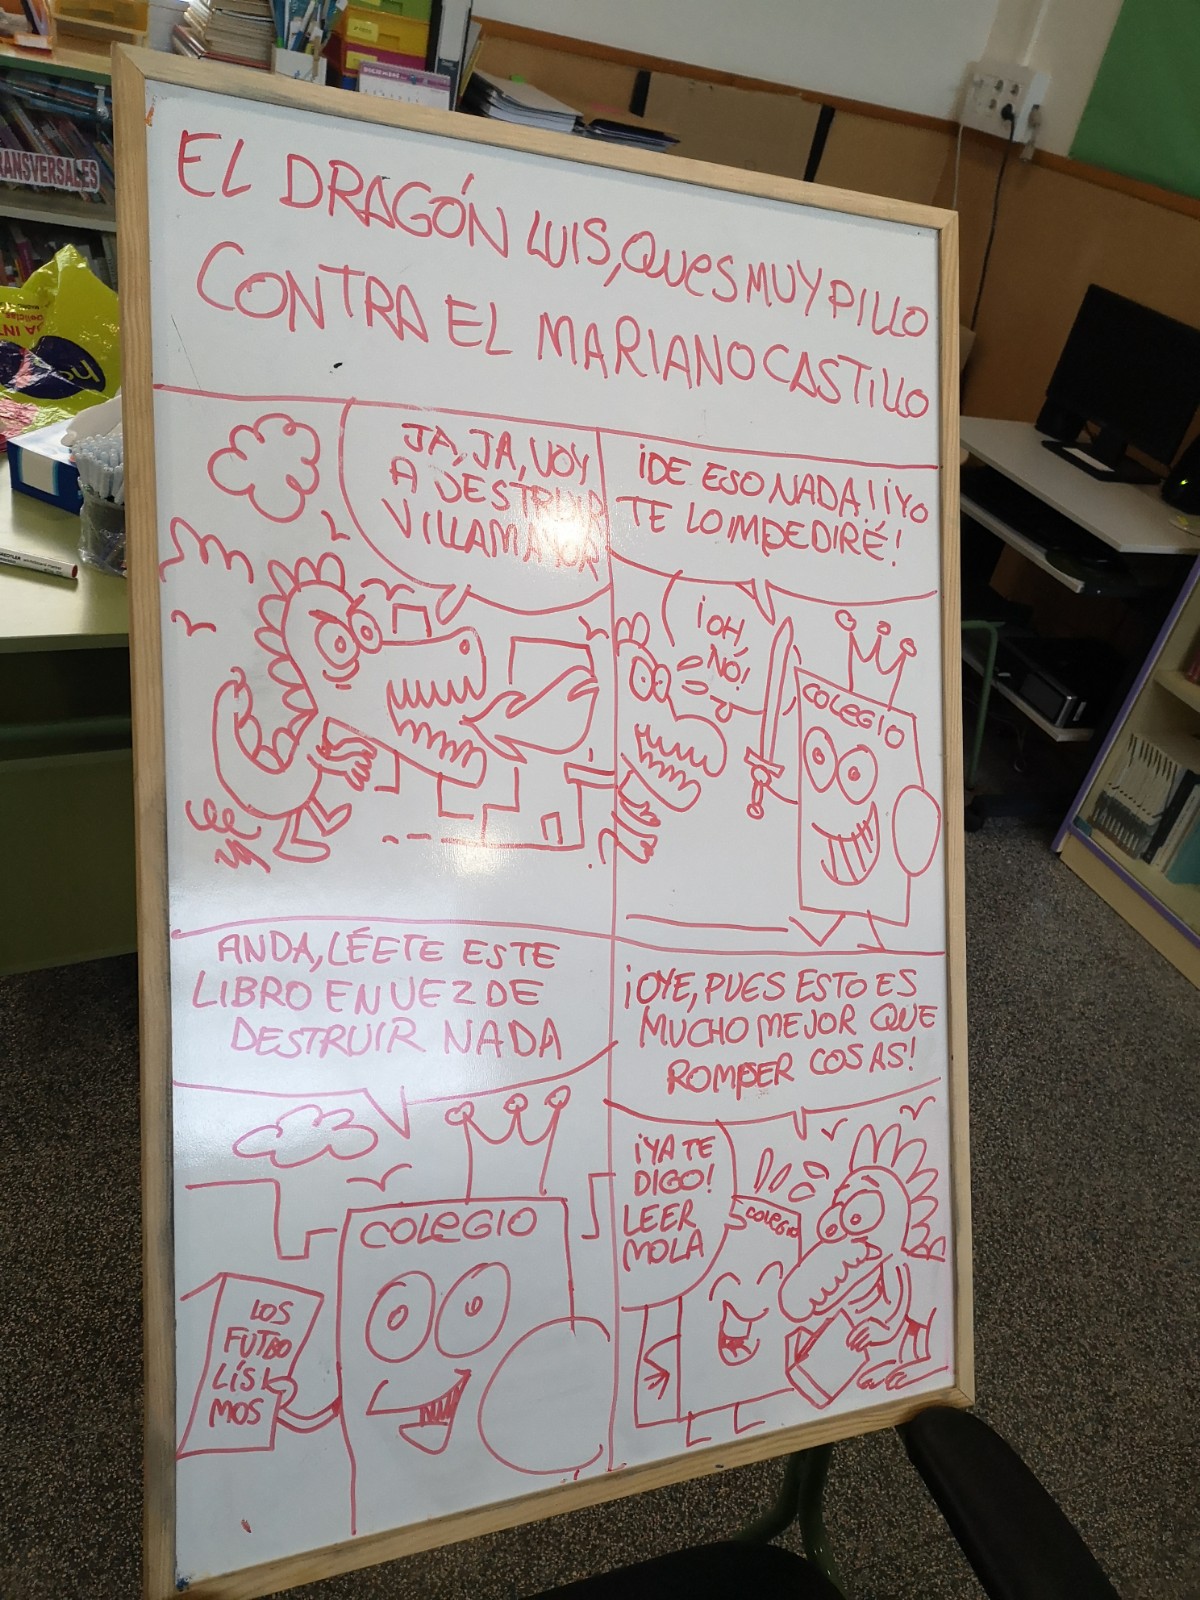 EL DRAGÓN LUIS, QUES MUY PILLO
CONTRA EL MARIANO CASTILLO
JA, JA, VOY
A DESTRUIR
VILLAMAYOR
¡DE ESO NADA! ¡YO
TE LO IMPEDIRÉ!
¡OH,
NÓ!
COLEGIO
ANDA, LÉETE ESTE
LIBRO EN VEZ DE
DESTRUIR NADA
COLEGIO
LOS
FUTBO
LÍSI
MOS
¡OYE, PUES ESTO ES
MUCHO MEJOR QUE
ROMPER COSAS!
¡YA TE
DIGO!
LEER
MOLA
COLEGIO
RANSVERSALES
DICIEMBRE